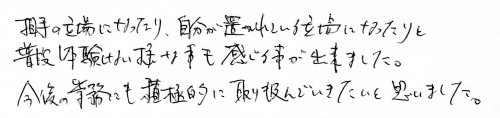 相手の立場になったり、自分が置かれている立場になったりと
普段体験しない様な事も感じる事が出来ました。
今後の業務にも積極的に取り扱んでいきたいと思いました。